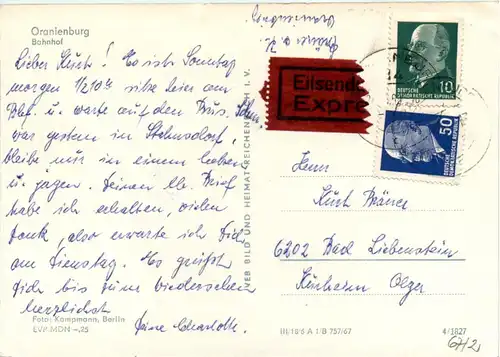 Oranienburg
Bahnhof
Lieber Kurt! Es ist Sonntag
morgen 1/2 10h sitze hier am
Bhf. u. warte auf den Bus.
war gestern in Stahnsdorf,
bleibe nur in einem
u. jagen. Deinen lb. Brief
habe ich erhalten, vielen
Dank, also erwarte ich Dich
am Dienstag. Es grüßt
Dich bis zum Wiedersehen
herzlichst
Deine Charlotte.
Foto: Kampmann, Berlin
EVP MDN -,25
VEB BILD UND HEIMAT REICHENBACH I. V.
Oranienburg
Eilsend
Expre
DEUTSCHE
DEMOKRATISCHE REPUBLIK
10
50
DEUTSCHE
DEMOKRATISCHE REPUBLIK
Herrn
Kurt
6202 Bad Liebenstein
Kurheim Olga
III/18/6 A 1/B 757/67
4/1827